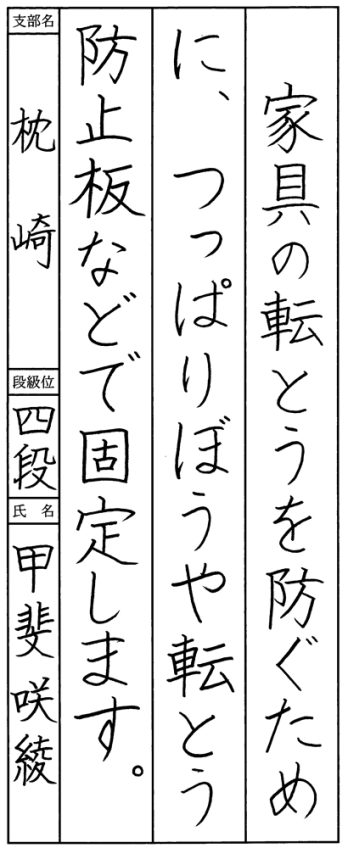 家具の転とうを防ぐため
に、つっぱりぼうや転とう
防止板などで固定します。
支部名
枕崎
段級位
四段
氏名
甲斐咲綾